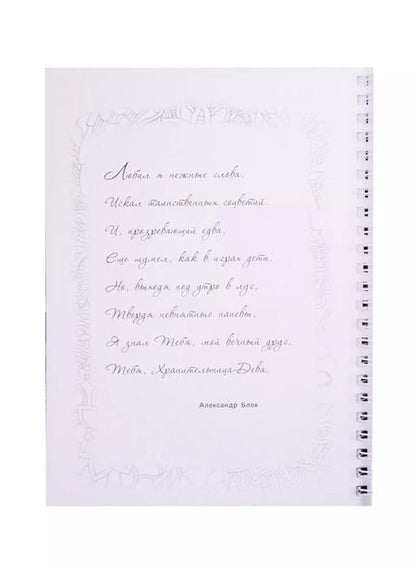 Любил я нежные слова.
Искал таинственных соцветий.
И, прозревающий едва,
Еще шумел, как в играх дети.
Но, выходя под утро в луг,
Твердя невнятные напевы,
Я знал Тебя, мой вечный друг,
Тебя, Хранительница-Дева.
Александр Блок